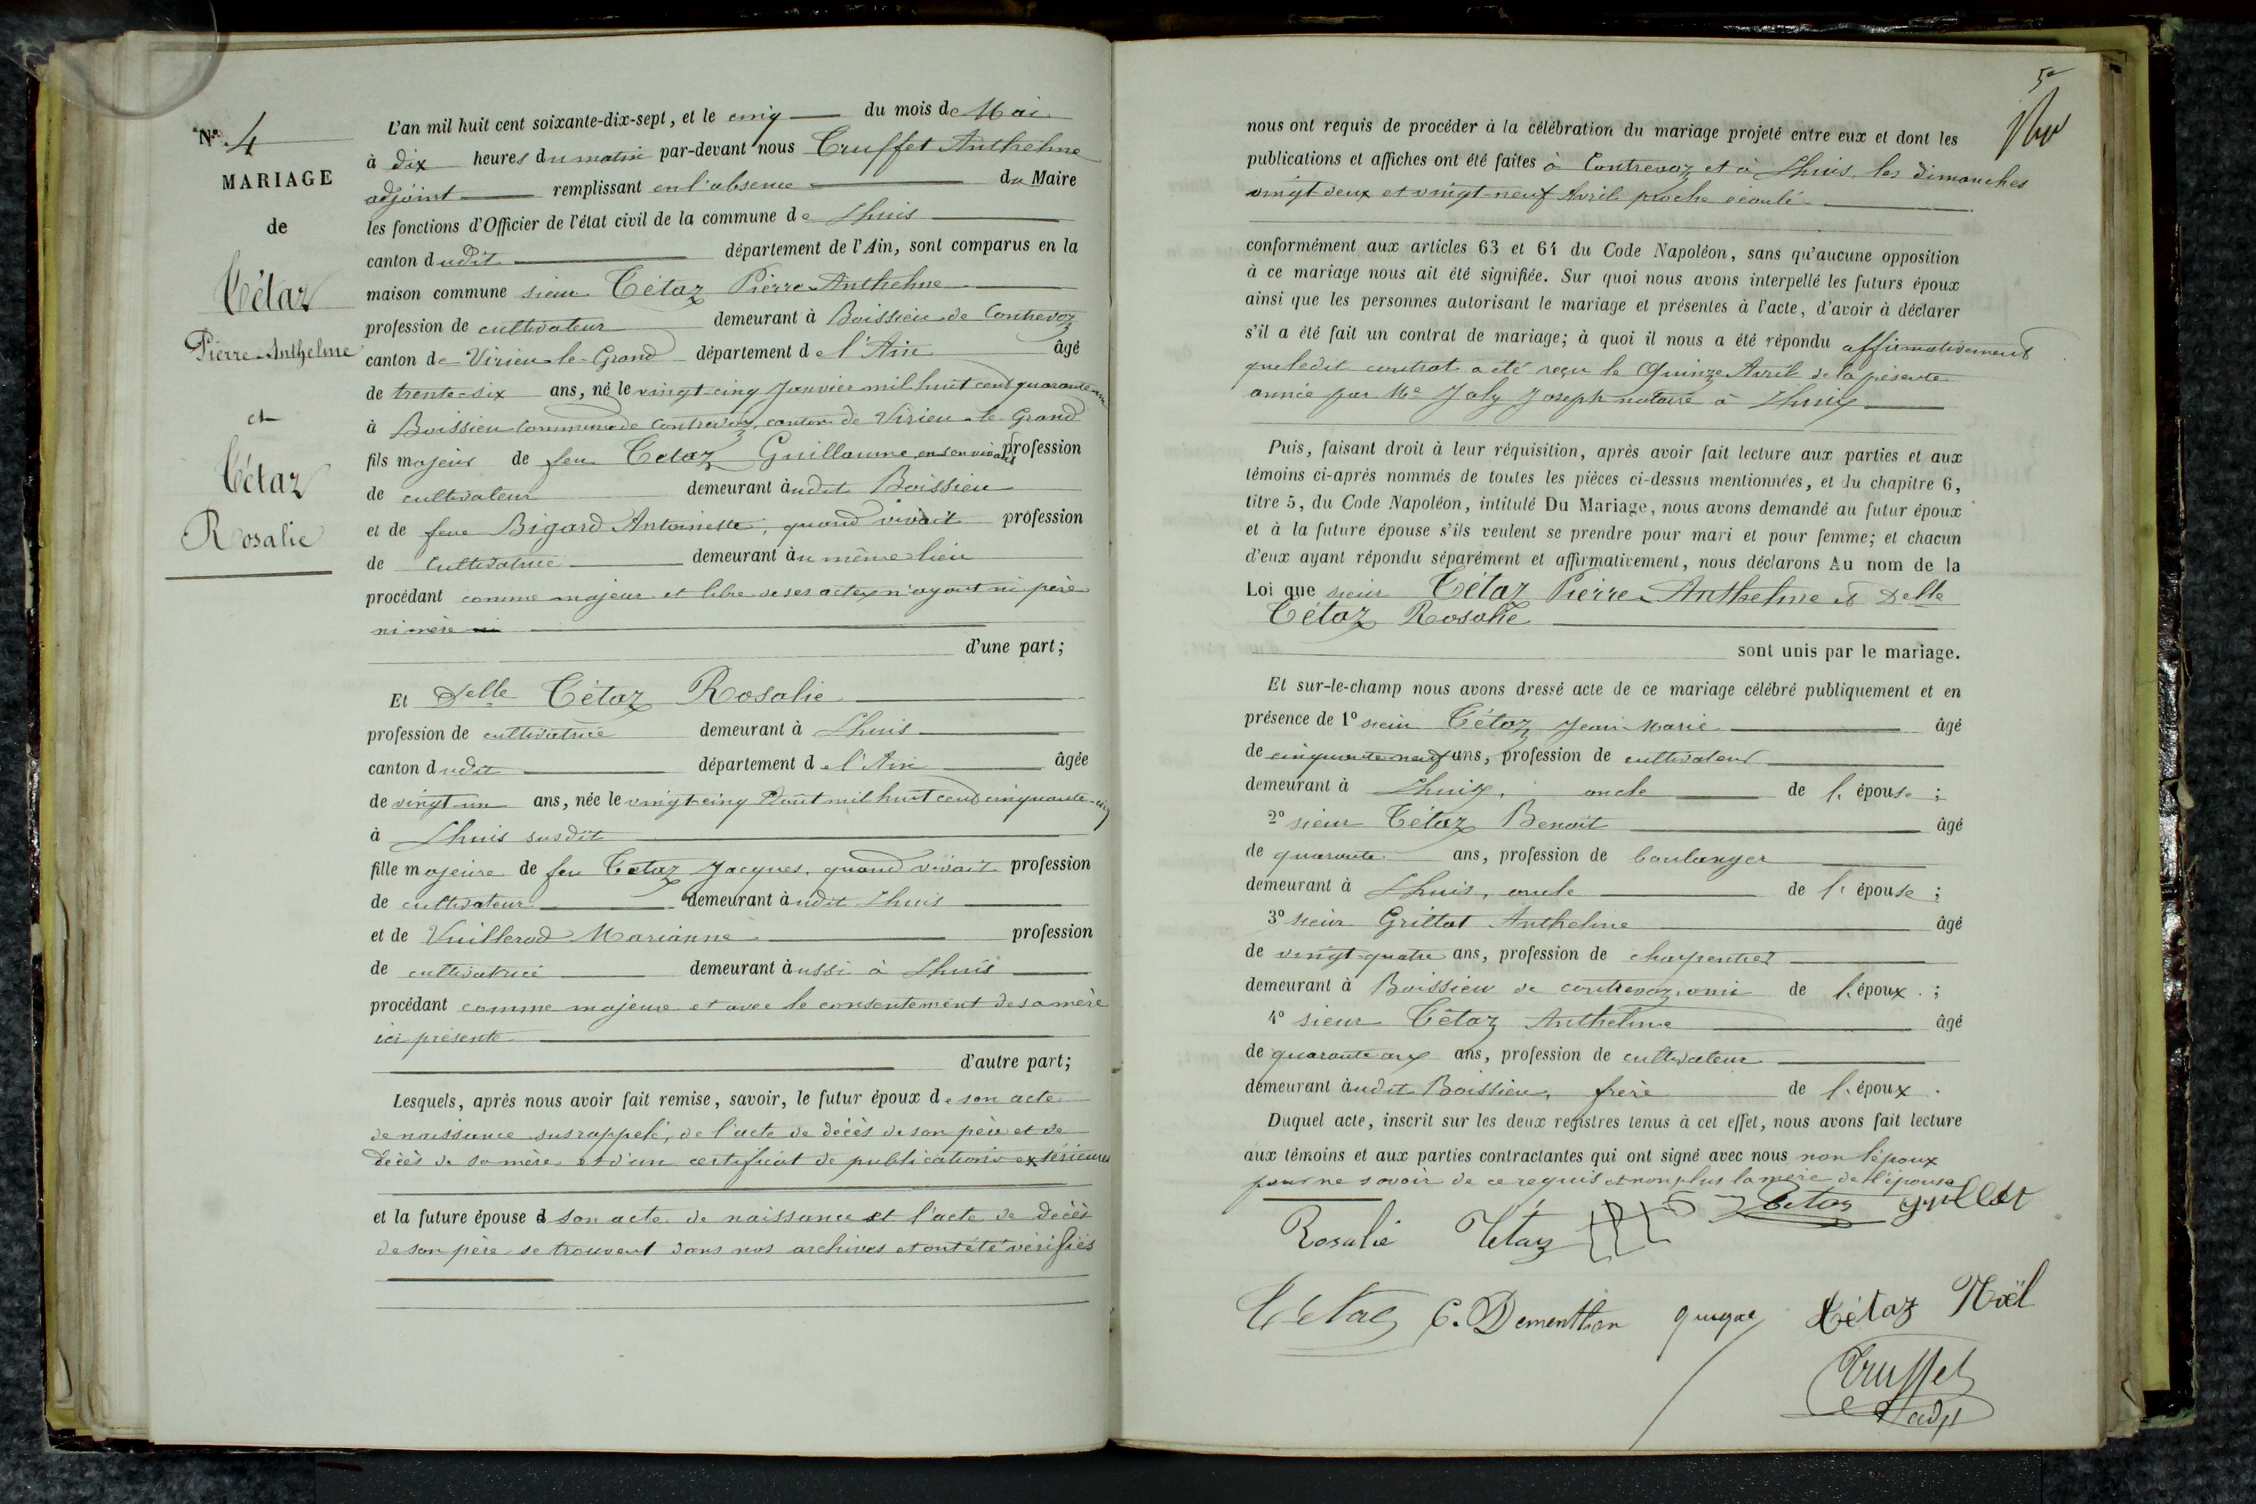 No 4
MARIAGE
de
Tétaz
Pierre-Anthelme
et
Tétaz
Rosalie
L'an mil huit cent soixante-dix-sept, et le cinq du mois de Mai
à dix heures du matin par-devant nous Truffet Anthelme
adjoint remplissant en l'absence du Maire
les fonctions d'Officier de l'état civil de la commune de Lhuis
canton dudit département de l'Ain, sont comparus en la
maison commune sieur Tétaz Pierre-Anthelme
profession de cultivateur demeurant à Boissieu de Contrevoz
canton de Virieu-le-Grand département de l'Ain âgé
de trente-six ans, né le vingt-cinq Janvier mil huit cent quarante-un
à Boissieu commune de Contrevoz, canton de Virieu-le-Grand
fils majeur de feu Tétaz Guillaume, en son vivant profession
de cultivateur demeurant audit Boissieu
et de feue Bigard Antoinette, quand vivait profession
de cultivatrice demeurant au même lieu
procédant comme majeur et libre de ses actes n'ayant ni père
ni mère
d'une part;
Et Delle Tétaz Rosalie
profession de cultivatrice demeurant à Lhuis
canton dudit département de l'Ain âgée
de vingt-un ans, née le vingt-cinq Août mil huit cent cinquante-cinq
à Lhuis susdit
fille majeure de feu Tétaz Jacques, quand vivait profession
de cultivateur demeurant audit Lhuis
et de Vuillerod Marianne profession
de cultivatrice demeurant aussi à Lhuis
procédant comme majeure et avec le consentement de sa mère
ici présente
d'autre part;
Lesquels, après nous avoir fait remise, savoir, le futur époux de son acte
de naissance susrappelé, de l'acte de décès de son père et de
décès de sa mère et d'un certificat de publications extérieures
et la future épouse d son acte de naissance et l'acte de décès
de son père se trouvent dans nos archives et ont été vérifiés
5
nous ont requis de procéder à la célébration du mariage projeté entre eux et dont les
publications et affiches ont été faites à Contrevoz et à Lhuis, les dimanches
vingt deux et vingt neuf Avril proche écoulé
conformément aux articles 63 et 64 du Code Napoléon, sans qu'aucune opposition
à ce mariage nous ait été signifiée. Sur quoi nous avons interpellé les futurs époux
ainsi que les personnes autorisant le mariage et présentes à l'acte, d'avoir à déclarer
s'il a été fait un contrat de mariage; à quoi il nous a été répondu affirmativement
que ledit contrat a été reçu le Quinze Avril de la présente
année par Me Joly Joseph notaire à Lhuis
Puis, faisant droit à leur réquisition, après avoir fait lecture aux parties et aux
témoins ci-après nommés de toutes les pièces ci-dessus mentionnées, et du chapitre 6,
titre 5, du Code Napoléon, intitulé Du Mariage, nous avons demandé au futur époux
et à la future épouse s'ils veulent se prendre pour mari et pour femme; et chacun
d'eux ayant répondu séparément et affirmativement, nous déclarons Au nom de la
Loi que sieur Tétaz Pierre-Anthelme et Delle
Tétaz Rosalie
sont unis par le mariage.
Et sur-le-champ nous avons dressé acte de ce mariage célébré publiquement et en
présence de 1o sieur Tétaz Jean-Marie âgé
de cinquante-neuf ans, profession de cultivateur
demeurant à Lhuis, oncle de l'épouse ;
2o sieur Tétaz Benoit âgé
de quarante ans, profession de boulanger
demeurant à Lhuis, oncle de l'épouse ;
3o sieur Grillot Anthelme âgé
de vingt-quatre ans, profession de charpentier
demeurant à Boissieu de contrevoz, ami de l'époux ;
4o sieur Tétaz Anthelme âgé
de quarante ans, profession de cultivateur
demeurant audit Boissieu, frère de l'époux.
Duquel acte, inscrit sur les deux registres tenus à cet effet, nous avons fait lecture
aux témoins et aux parties contractantes qui ont signé avec nous non l'époux
pour ne savoir de ce requis et non plus la mère de l'épouse
Rosalie Tétaz Tétaz grillot
Tétaz C. Dementhon Tétaz Noël
Truffet
adjt